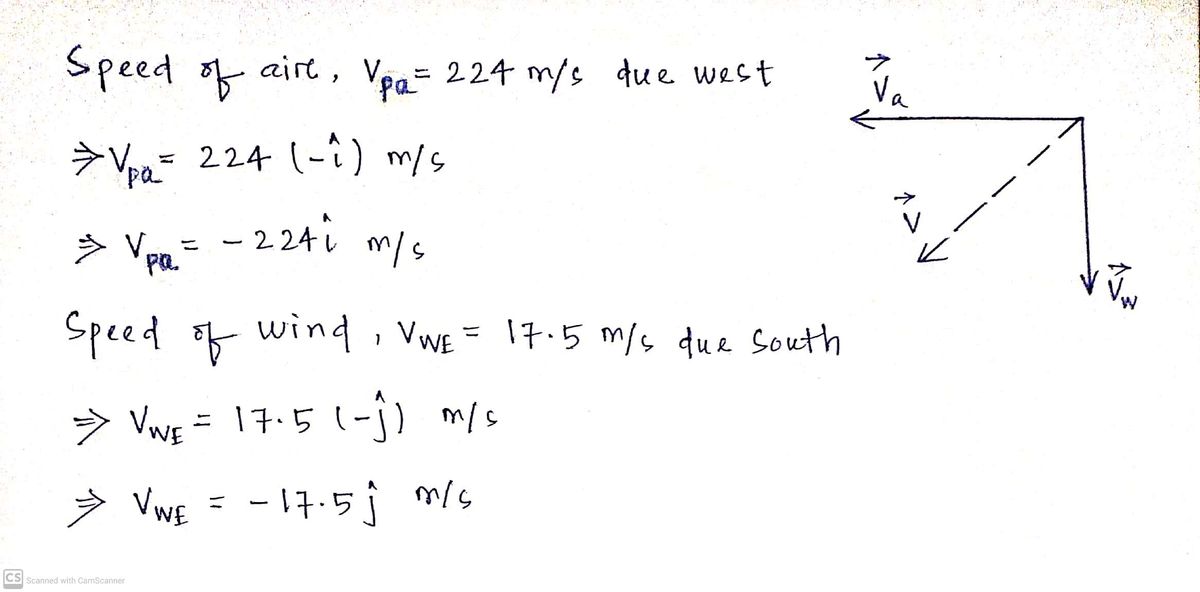 Speed of aire, Vpa = 224 m/s due west
⇒ Vpa = 224 (-î) m/s
⇒ Vpa = - 224 î m/s
Speed of wind, VWE = 17.5 m/s due South
⇒ VWE = 17.5 (-ĵ) m/s
⇒ VWE = - 17.5 ĵ m/s
V⃗a
V⃗
V⃗w
CS Scanned with CamScanner